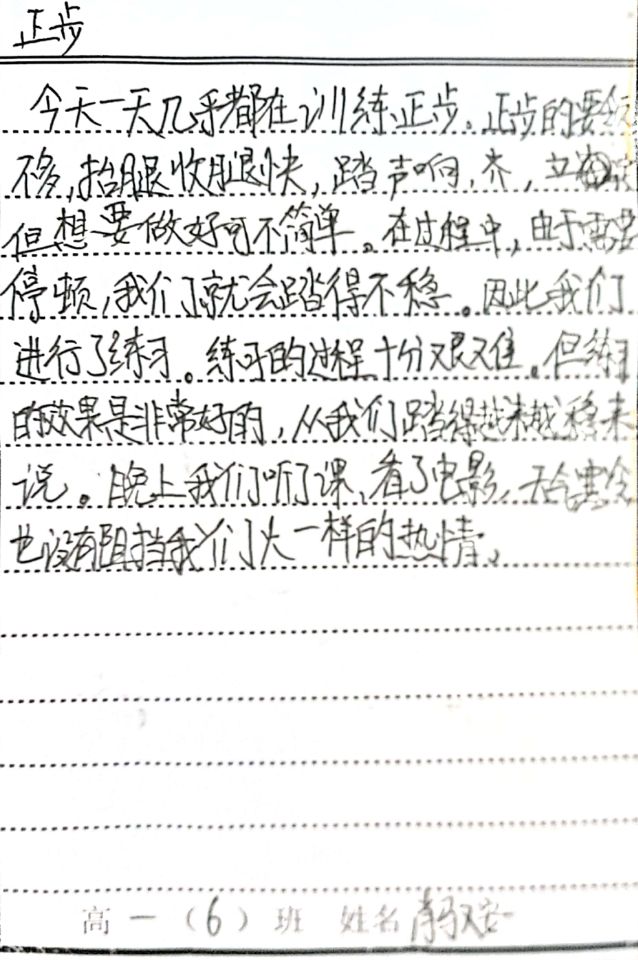 正步
今天一天几乎都在训练正步。正步的要领
不多,抬腿收腿快,踏声响、齐,立
但想要做好可不简单。在过程中,由于需要
停顿,我们就会踏得不稳。因此我们
进行了练习。练习的过程十分艰难。但练习
的效果是非常好的,从我们踏得越来越稳来
说。晚上我们听了课,看了电影,天气
也没有阻挡我们火一样的热情。
高一(6)班 姓名